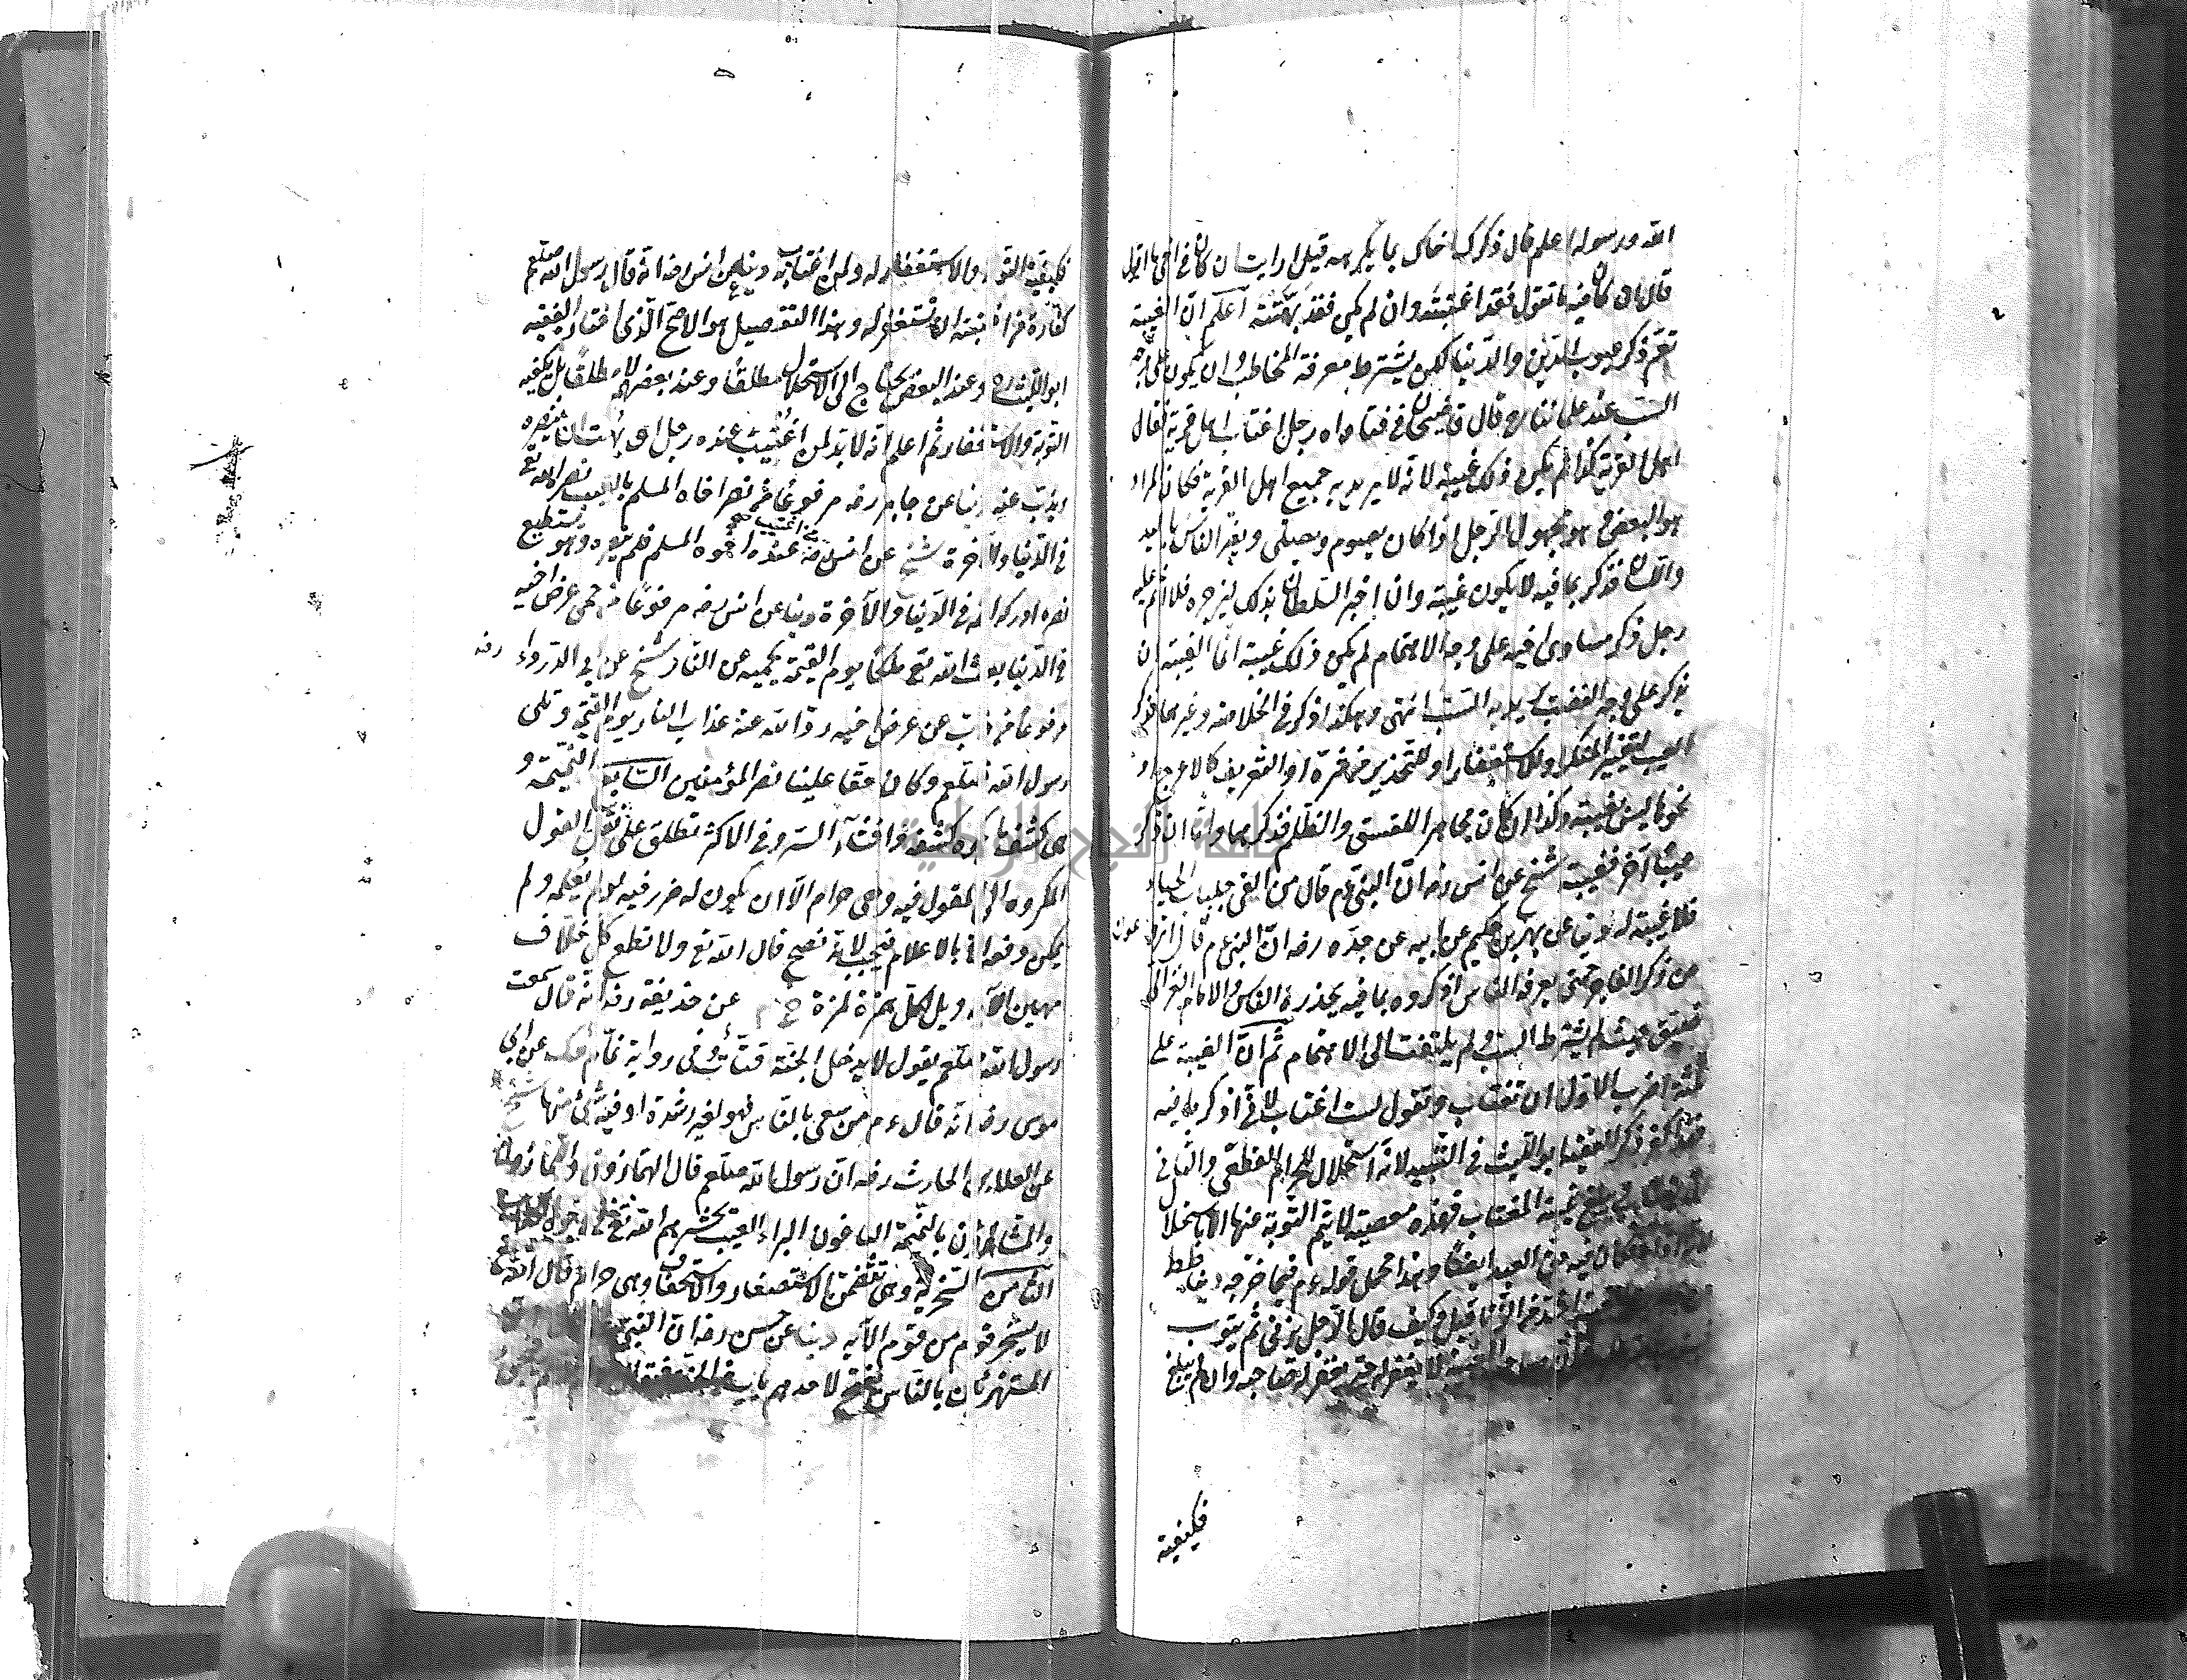 الله ورسوله اعلم قال ذكرك اخاك بما يكرهه قيل ارايت ان كان في اخي ما اقول
قال ان كان فيه ما تقول فقد اغتبته وان لم يكن فقد بهتته اعلم ان الغيبة
تعم ذكر عيوب الدين والدنيا لكن يشترط معرفة المخاطب وان يكون على وجه
السب عند علمائنا رح قال قاضيخان في فتاواه رجل اغتاب اهل قرية فقال
اهل القرية كذا لم يكن ذلك غيبة لانه لا يريد به جميع اهل القرية فكان المراد
هو البعض وهو مجهول الرجل اذا كان يصوم ويصلي ويضر الناس باليد
واللسان فذكر بما فيه لا يكون غيبة وان اخبر السلطان بذلك ليزجره فلا اثم عليه
رجل ذكر مساوى اخيه على وجه الاهتمام لم يكن ذلك غيبة انما الغيبة ان
يذكر على وجه الغضب يريد به السب انتهى وهكذا ذكر في الخلاصة وغيرها فذكر
العيب لتغيير المنكر او للاستغفار او للتحذير من شره او التعريف كالاعرج او
نحوها ليس بغيبة وكذا ان كان مجاهرا للفسق والظلم فذكر بهما واما ان ذكر
عيبا آخر فغيبة شيخ عن انس رضه ان النبي عم قال من القى جلباب الحياء
فلا غيبة له دنيا عن بهز بن حكيم عن ابيه عن جده رضه ان النبي عم قال اترعون
من ذكر الفاجر حتى يعرفه الناس اذكروه بما فيه يحذره الناس والامام الغزالي
ضيق حيث لم يشترط السب ولم يلتفت الى الاهتمام ثم ان الغيبة على
ثلثة اضرب الاول ان تغتاب وتقول لست اغتاب لاني اذكر ما فيه
فهذا كفر ذكره الفقيه ابو الليث في التنبيه لانه استحلال للحرام القطعي والثاني
ان يغتاب ويبلغ غيبة المغتاب فهذه معصية لا يتم التوبة عنها الا بالاستحلال
لانه اذاه فكان فيه حق العبد ايضا وهذا محمل قوله عم فيما خرجه دنيا طط
الغيبة اشد من الزنا قيل وكيف قال الرجل يزني ثم يتوب
صاحب الغيبة لا يغفر له حتى يغفر له صاحبه وان لم يبلغ
فكيفية
فكيفية التوبة والاستغفار له ولمن اغتابه دنيا عن انس رضه انه قال رسول الله صلعم
كفارة من اغتبته ان تستغفر له وهذا التفصيل هو الاصح الذي اختاره الفقيه
ابو الليث رح وعند البعض يحتاج الى الاستحلال مطلقا وعند بعضهم لا مطلقا بل يكفيه
التوبة والاستغفار ثم اعلم انه لا بد لمن اغتيب عنده رجل او بهت ان ينصره
ويذب عنه دنيا عن جابر رضه مرفوعا من نصر اخاه المسلم بالغيب نصره الله تع
في الدنيا والاخرة شيخ عن انس رضه من اغتيب عنده اخوه المسلم فلم ينصره وهو يستطيع
نصره ادركه اثمه في الدنيا والآخرة دنيا عن انس رضه مرفوعا من حمى عرض اخيه
في الدنيا بعث الله تع ملكا يوم القيمة يحميه عن النار شيخ عن ابي الدرداء رضه
مرفوعا من ذب عن عرض اخيه رد الله عنه عذاب النار يوم القيمة وتلى
رسول الله صلعم وكان حقا علينا نصر المؤمنين السابع النميمة و
هى كشف ما يكره كشفه وافشاء السر وفي الاكثر تطلق على نقل القول
المكروه الى المقول فيه وهى حرام الا ان يكون له ضرر فيه لو لم يعلمه ولم
يمكن دفعه الا بالاعلام فيجب لانه نصح قال الله تع ولا تطع كل حلاف
مهين الآية ويل لكل همزة لمزة خ م عن حذيفة رضه انه قال سمعت
رسول الله صلعم يقول لا يدخل الجنة قتات وفي رواية نمام حك عن ابي
موسى رضه انه قال عم من سعى بالناس فهو لغير رشدة او فيه شئ منها شيخ
عن العلاء بن الحارث رضه ان رسول الله صلعم قال الهمازون واللمازون
والمشاؤن بالنميمة الباغون البراء العيب يحشرهم الله تع في وجوه الكلاب
الثامن السخرية وهى تتضمن الاستصغار والاستخفاف وهى حرام قال الله تع
لا يسخر قوم من قوم الآية دنيا عن حسن رضه ان النبي
المستهزئين بالناس يفتح لاحدهم باب من الجنة